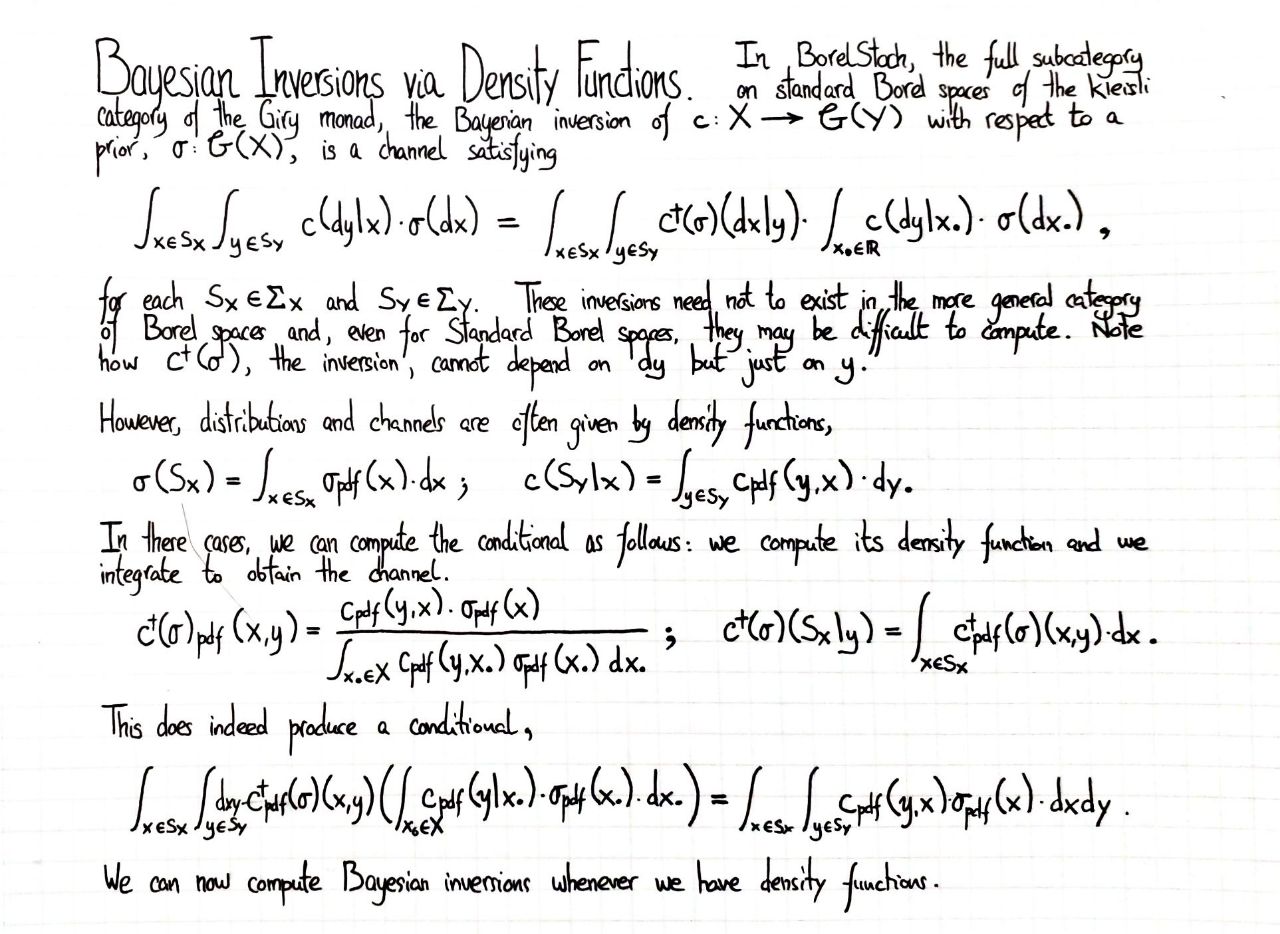 Bayesian Inversions via Density Functions. In BorelStoch, the full subcategory
on standard Borel spaces of the Kleisli
category of the Giry monad, the Bayesian inversion of c: X → G(Y) with respect to a
prior, σ: G(X), is a channel satisfying
∫_{x∈S_X} ∫_{y∈S_Y} c(dy|x)·σ(dx) = ∫_{x∈S_X} ∫_{y∈S_Y} c†(σ)(dx|y)· ∫_{x₀∈ℝ} c(dy|x₀)· σ(dx₀) ,
for each S_X ∈ Σ_X and S_Y ∈ Σ_Y. These inversions need not to exist in the more general category
of Borel spaces and, even for Standard Borel spaces, they may be difficult to compute. Note
how c†(σ), the inversion, cannot depend on dy but just on y.
However, distributions and channels are often given by density functions,
σ(S_X) = ∫_{x∈S_X} σpdf(x)·dx ; c(S_Y|x) = ∫_{y∈S_Y} cpdf(y,x)·dy.
In there cases, we can compute the conditional as follows: we compute its density function and we
integrate to obtain the channel.
c†(σ)pdf (x,y) = cpdf(y,x)·σpdf(x) / ∫_{x₀∈X} cpdf(y,x₀) σpdf(x₀) dx₀ ; c†(σ)(S_X|y) = ∫_{x∈S_X} c†pdf(σ)(x,y)·dx .
This does indeed produce a conditional,
∫_{x∈S_X} ∫_{y∈S_Y} dxy·c†pdf(σ)(x,y)(∫_{x₀∈X} cpdf(y|x₀)·σpdf(x₀)·dx₀) = ∫_{x∈S_X} ∫_{y∈S_Y} cpdf(y,x)·σpdf(x)·dxdy .
We can now compute Bayesian inversions whenever we have density functions.